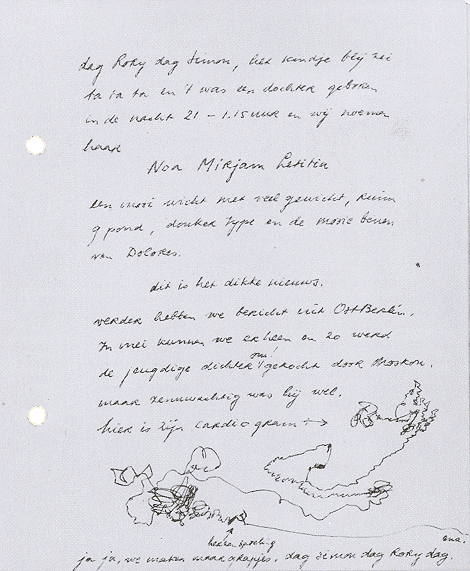 dag Roky dag Simon, het kindje blij zei
ta ta ta en 't was een dochter geboren
in de nacht 21 – 1.15 uur en wij noemen
haar
Noa Mirjam Letitia
een mooi wicht met veel gewicht, ruim
9 pond, donker type en de mooie benen
van Dolores.
dit is het dikke nieuws.
verder hebben we bericht uit OostBerlin.
In mei kunnen we erheen en zo werd
de jeugdige dichter om! gekocht door Moskou.
maar zenuwachtig was hij wel.
hier is zijn cardiogram →
hersenspoeling
enz.
ja ja, we maken maar grapjes. dag Simon dag Roky dag.